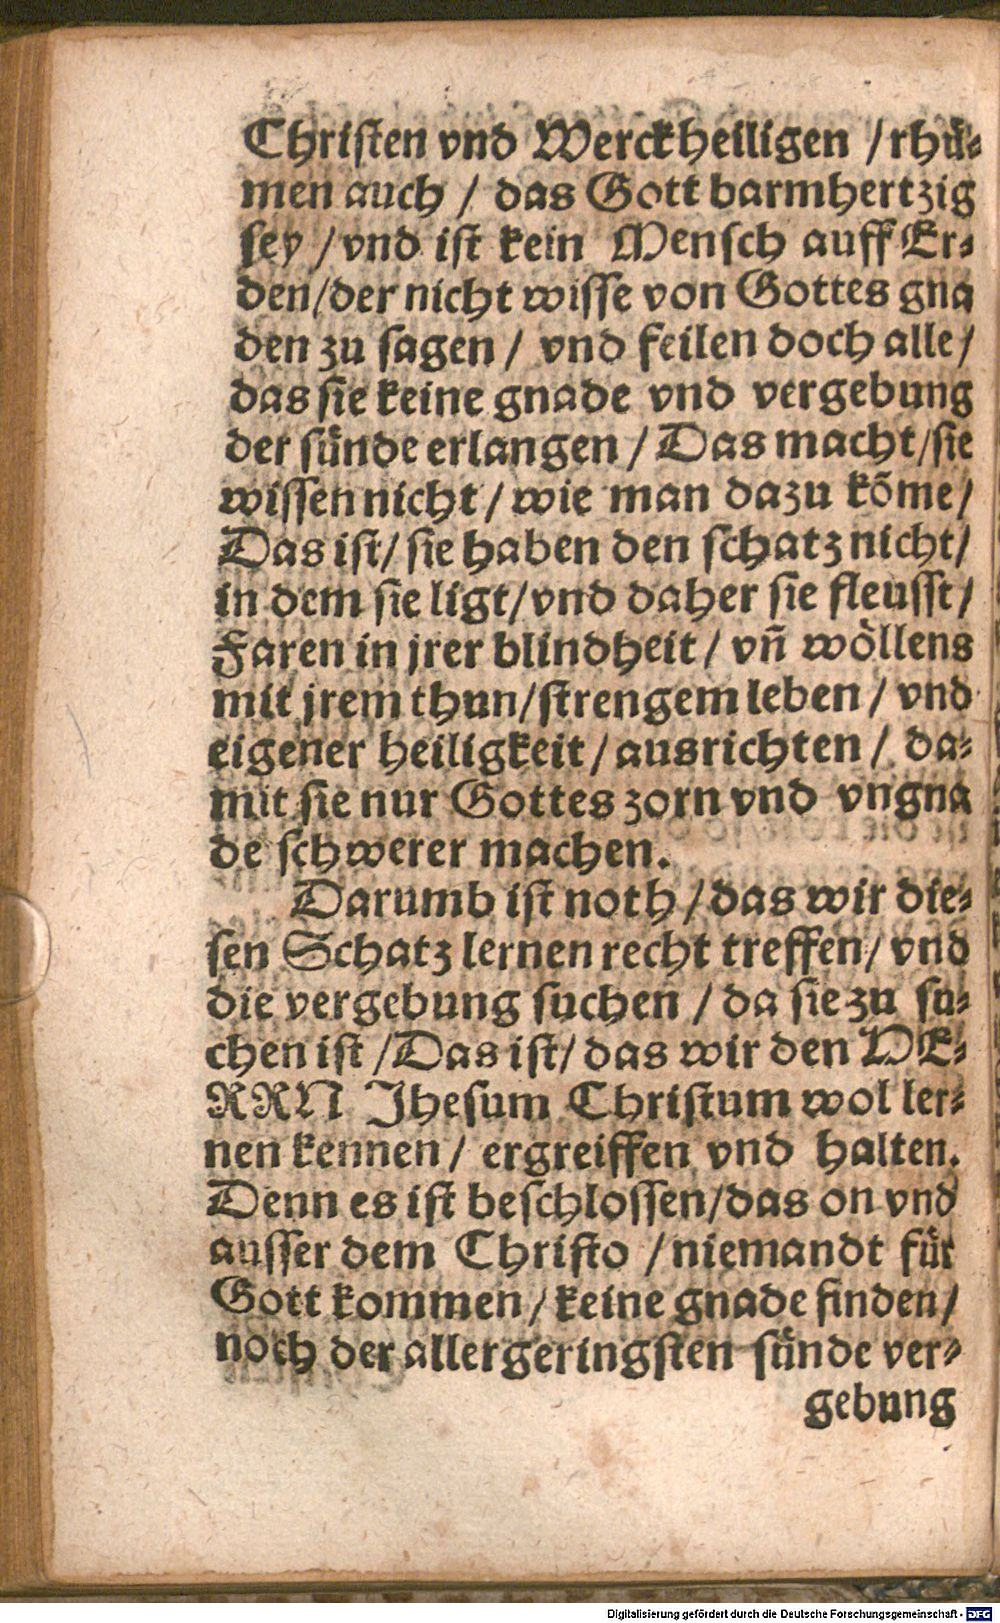 Christen vnd Werckheiligen / rhü⸗
men auch / das Gott barmhertzig
sey / vnd ist kein Mensch auff Er⸗
den/der nicht wisse von Gottes gna
den zu sagen / vnd feilen doch alle/
das sie keine gnade vnd vergebung
der sünde erlangen / Das macht/sie
wissen nicht / wie man dazu kõme/
Das ist/ sie haben den schatz nicht/
in dem sie ligt/vnd daher sie fleusst/
Faren in jrer blindheit / vñ wöllens
mit jrem thun/strengem leben / vnd
eigener heiligkeit / ausrichten / da⸗
mit sie nur Gottes zorn vnd vngna
de schwerer machen.
Darumb ist noth / das wir die⸗
sen Schatz lernen recht treffen/ vnd
die vergebung suchen / da sie zu su⸗
chen ist /Das ist/ das wir den HE⸗
RRN Jhesum Christum wol ler⸗
nen kennen/ ergreiffen vnd halten.
Denn es ist beschlossen/das on vnd
ausser dem Christo / niemandt für
Gott kommen / keine gnade finden/
noch der allergeringsten sünde ver⸗
gebung
Digitalisierung gefördert durch die Deutsche Forschungsgemeinschaft - DFG